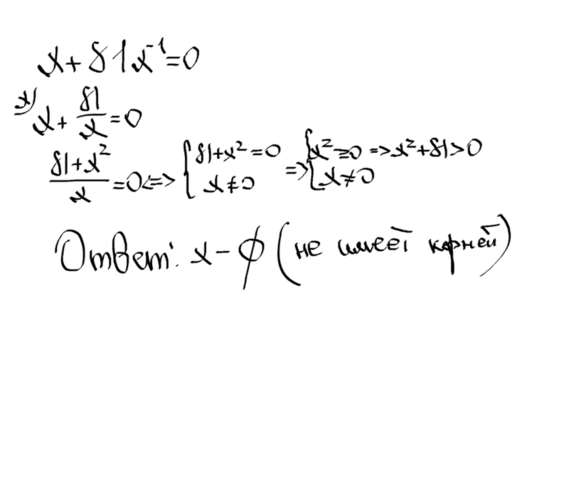 x + 81x⁻¹ = 0
x/ x + 81/x = 0
(81 + x²)/x = 0 <=> { 81 + x² = 0 x ≠ 0 => { x² ≥ 0 => x² + 81 > 0 x ≠ 0
Ответ: x - ∅ (не имеет корней)